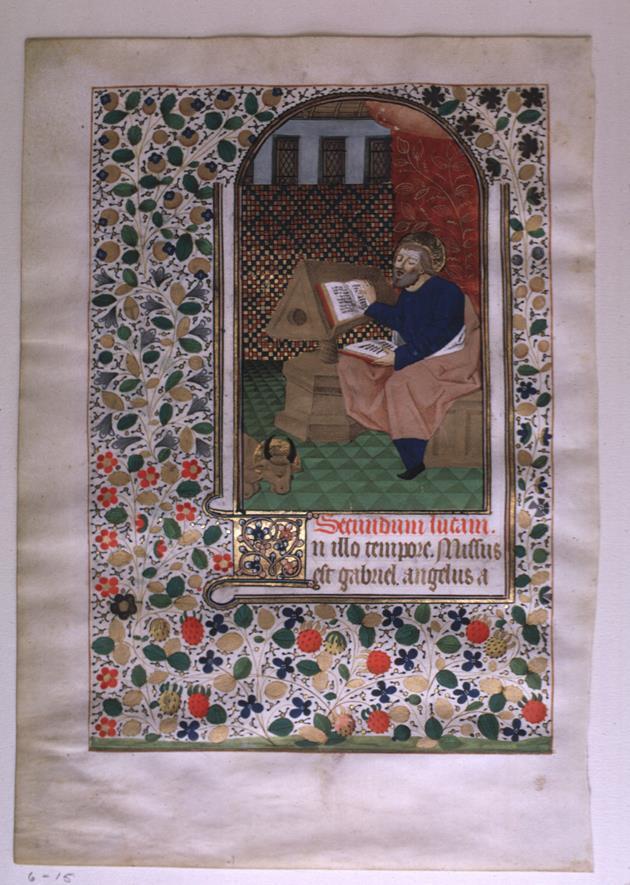 Secundum lucam.
In illo tempore. Missus
est gabriel. angelus a
6-15